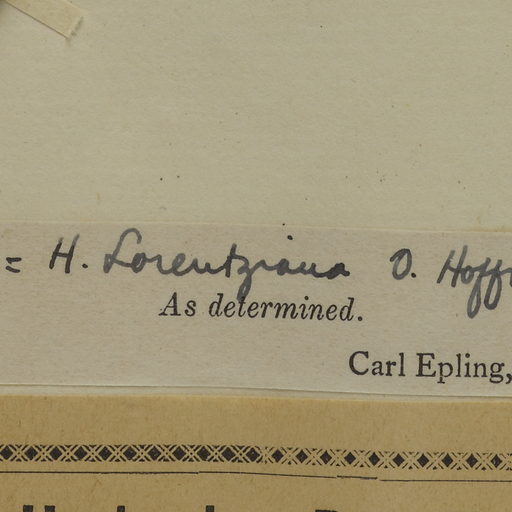 = H. Lorentziana O. Hoff
As determined.
Carl Epling,